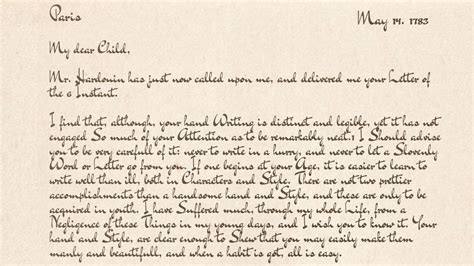 Paris May 14. 1783
My dear Child,
Mr. Hardouin has just now called upon me, and delivered me your Letter of
the 6 Instant.
I find that, although, your hand Writing is distinct and legible, yet it has not
engaged So much of your Attention as to be remarkably neat.1 I Should advise
you to be very carefull of it: never to write in a hurry, and never to let a Slovenly
Word or Letter go from you. If one begins at your Age, it is easier to learn to
write well than ill, both in Characters and Style. There are not two prettier
accomplishments than a handsome hand and Style, and these are only to be
acquired in youth. I have Suffered much, through my whole Life, from a
Negligence of these Things in my young days, and I wish you to know it. Your
hand and Style, are clear enough to Shew that you may easily make them
manly and beautifull, and when a habit is got, all is easy.